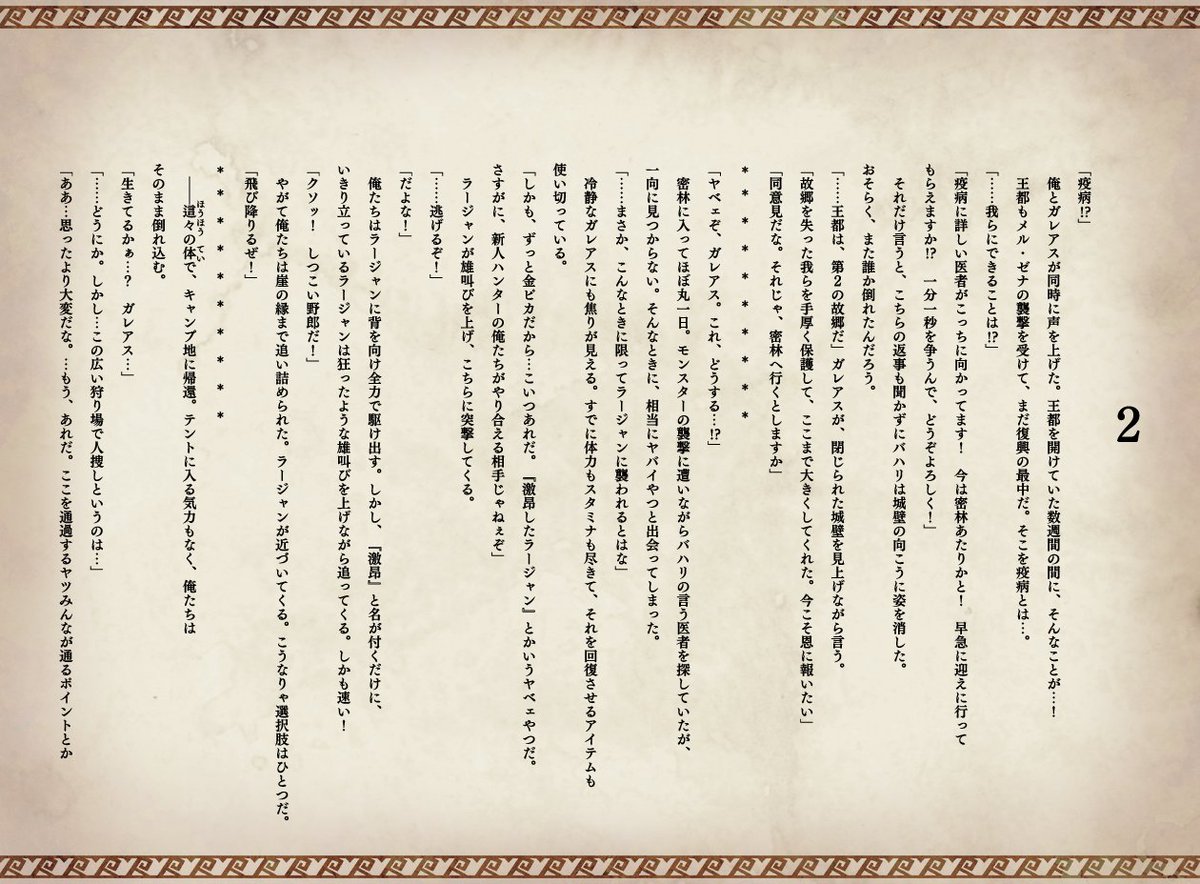 2
「疫病!?」
俺とガレアスが同時に声を上げた。王都を開けていた数週間の間に、そんなことが…!
王都もメル・ゼナの襲撃を受けて、まだ復興の最中だ。そこを疫病とは…。
「……我らにできることは!?」
「疫病に詳しい医者がこっちに向かってます!　今は密林あたりかと!　早急に迎えに行って
もらえますか!?　一分一秒を争うんで、どうぞよろしく!」
それだけ言うと、こちらの返事も聞かずにバハリは城壁の向こうに姿を消した。
おそらく、また誰か倒れたんだろう。
「……王都は、第2の故郷だ」ガレアスが、閉じられた城壁を見上げながら言う。
「故郷を失った我らを手厚く保護して、ここまで大きくしてくれた。今こそ恩に報いたい」
「同意見だな。それじゃ、密林へ行くとしますか」
＊＊＊＊＊＊＊＊＊＊
「ヤベェぞ、ガレアス。これ、どうする…!?」
密林に入ってほぼ丸一日。モンスターの襲撃に遭いながらバハリの言う医者を探していたが、
一向に見つからない。そんなときに、相当にヤバイやつと出会ってしまった。
「……まさか、こんなときに限ってラージャンに襲われるとはな」
冷静なガレアスにも焦りが見える。すでに体力もスタミナも尽きて、それを回復させるアイテムも
使い切っている。
「しかも、ずっと金ピカだから…こいつあれだ。『激昂したラージャン』とかいうヤベェやつだ。
さすがに、新人ハンターの俺たちがやり合える相手じゃねぇぞ」
ラージャンが雄叫びを上げ、こちらに突撃してくる。
「……逃げるぞ!」
「だよな!」
俺たちはラージャンに背を向け全力で駆け出す。しかし、『激昂』と名が付くだけに、
いきり立っているラージャンは狂ったような雄叫びを上げながら追ってくる。しかも速い!
「クソッ!　しつこい野郎だ!」
やがて俺たちは崖の縁まで追い詰められた。ラージャンが近づいてくる。こうなりゃ選択肢はひとつだ。
「飛び降りるぜ!」
＊＊＊＊＊＊＊＊＊＊
――這々の体で、キャンプ地に帰還。テントに入る気力もなく、俺たちは
ほうほう　てい
そのまま倒れ込む。
「生きてるかぁ…?　ガレアス…」
「……どうにか。しかし…この広い狩り場で人捜しというのは…」
「ああ…思ったより大変だな。…もう、あれだ。ここを通過するヤツみんなが通るポイントとか